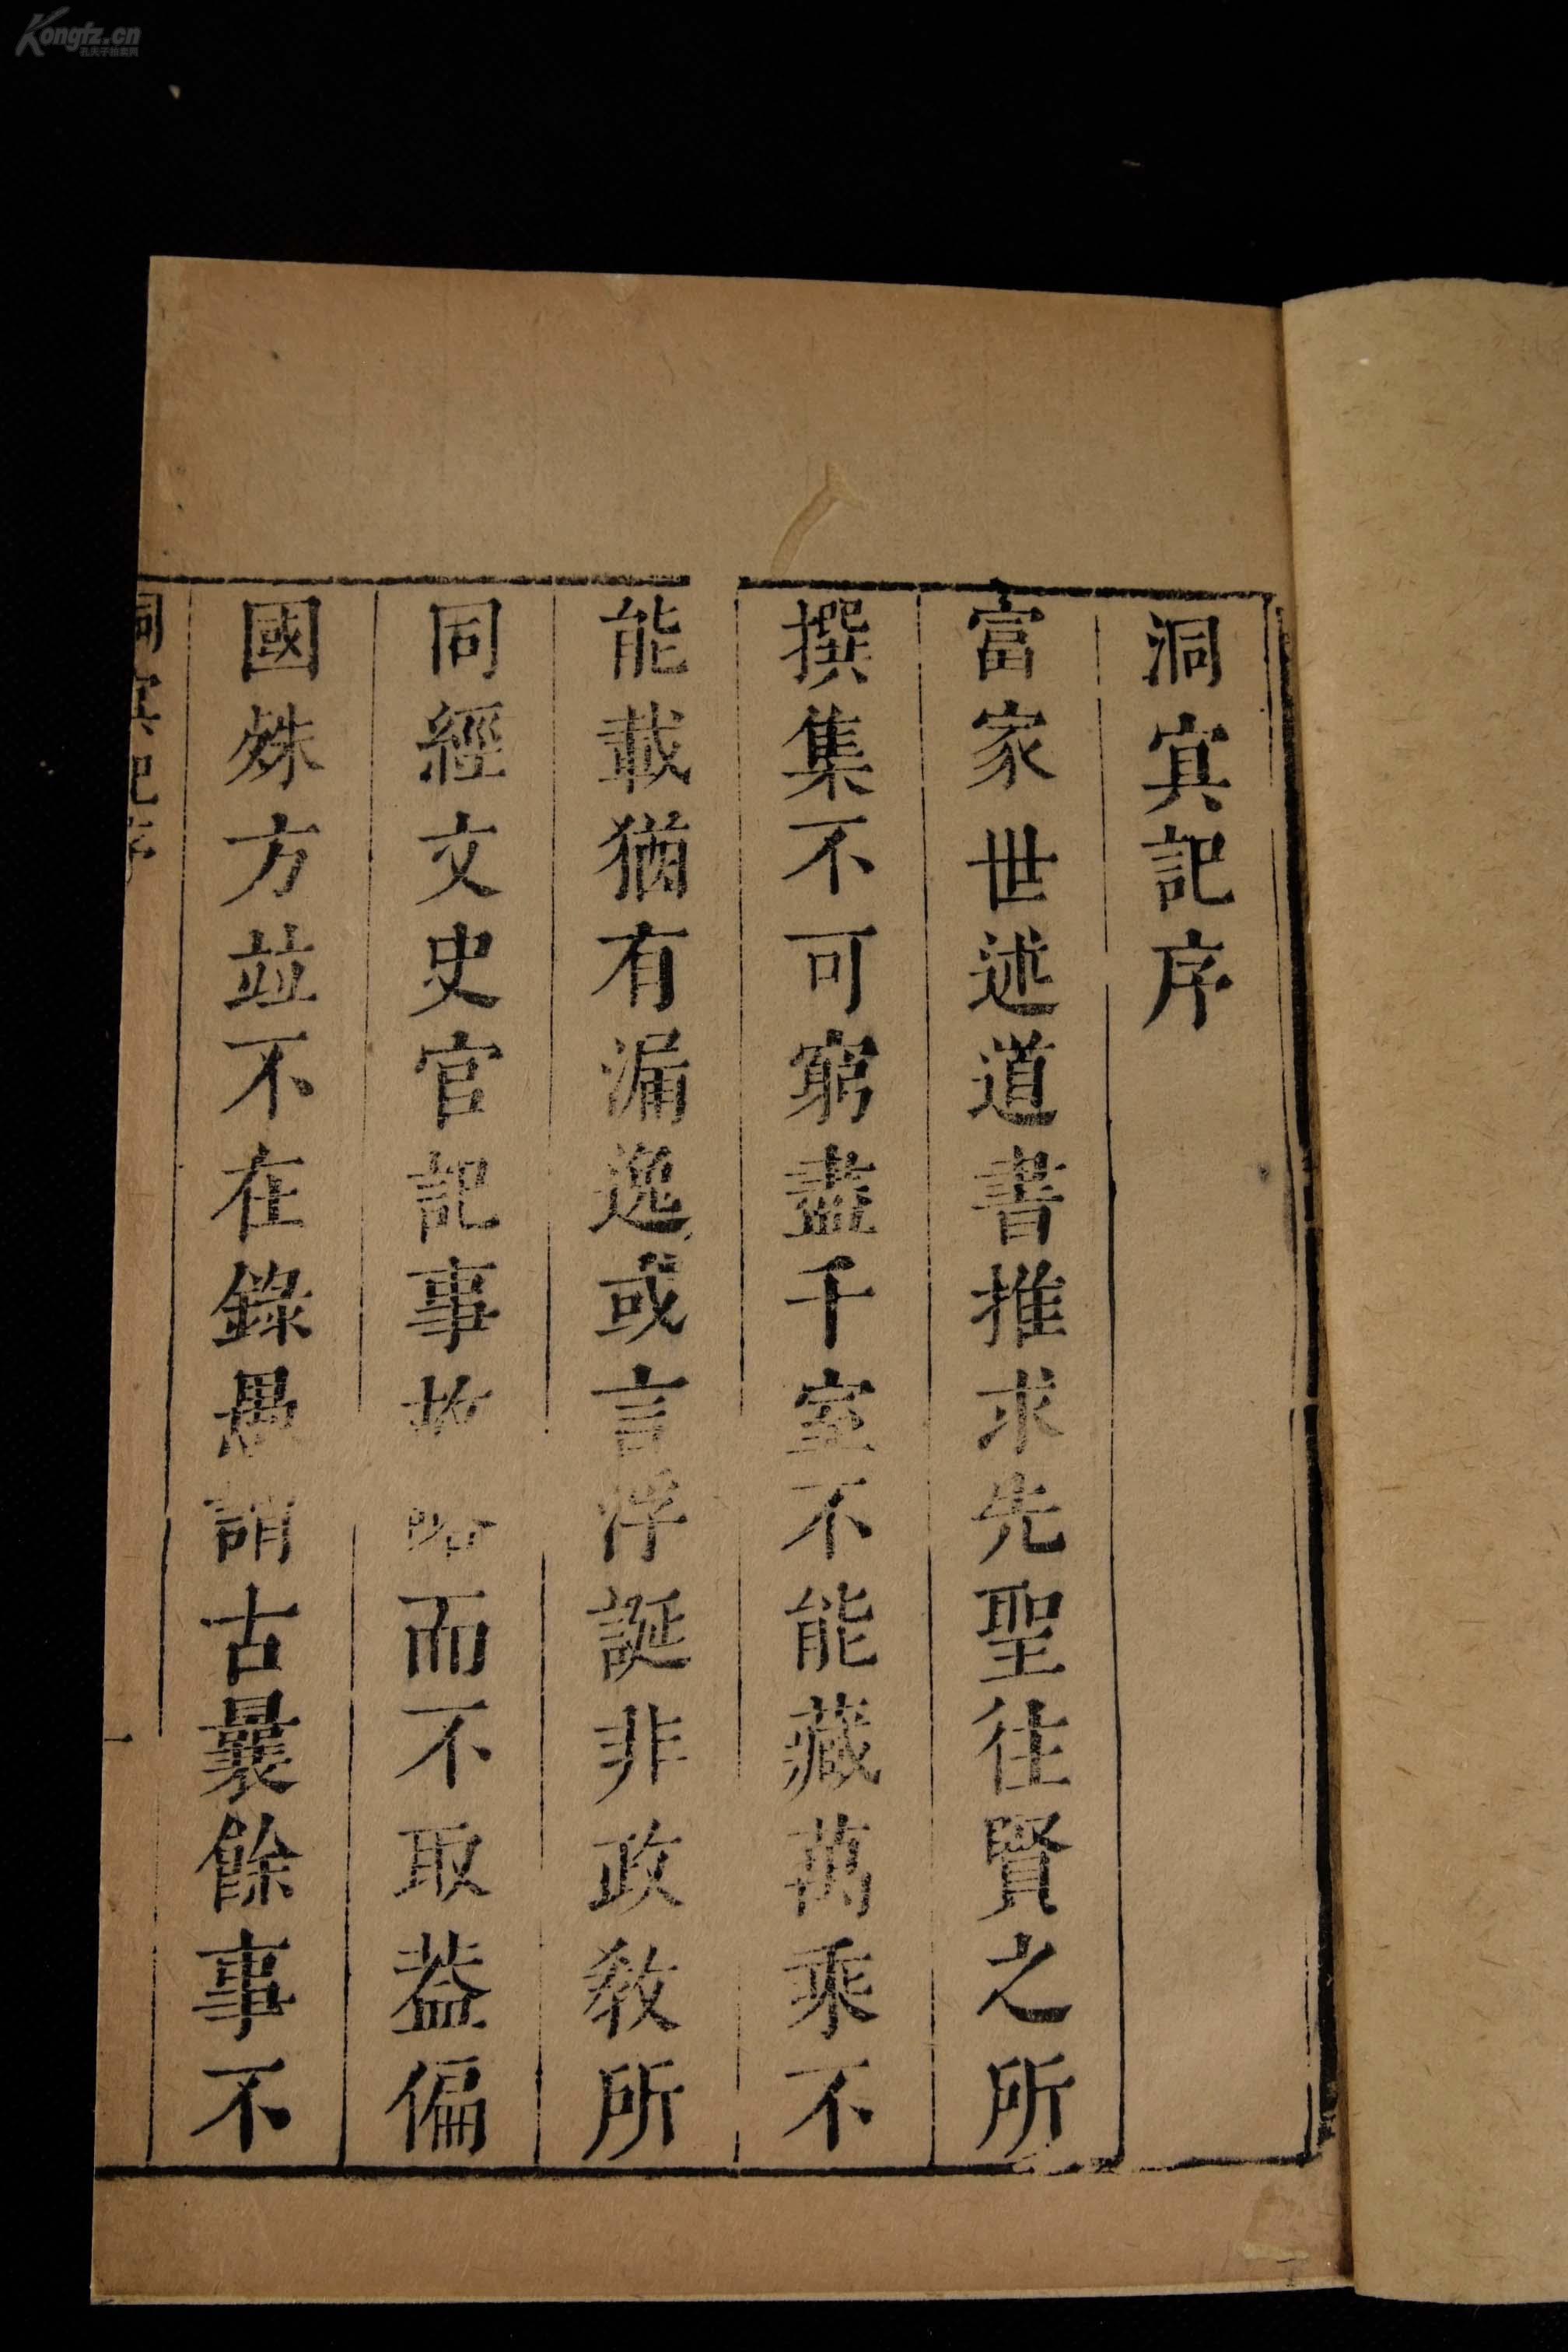 洞冥記序
富家世述道書推求先聖往賢之所
撰集不可窮盡千室不能藏萬乘不
能載猶有漏逸或言浮誕非政教所
同經文史官記事故略而不取葢偏
國殊方並不在錄愚謂古曩餘事不
洞冥記序
一
Kongfz.cn